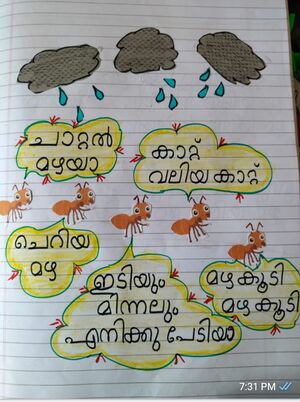 ചാറ്റൽ
മഴയാ
കാറ്റ്
വലിയ കാറ്റ്
ചെറിയ
മഴ
ഇടിയും
മിന്നലും
എനിക്കു പേടിയാ
മഴകൂടി
മഴകൂടി
7:31 PM